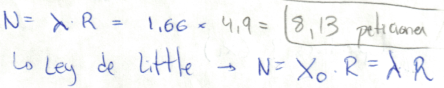 N = λ·R = 1,66 × 4,9 = 8,13 peticiones
La Ley de Little → N = X₀·R = λ R